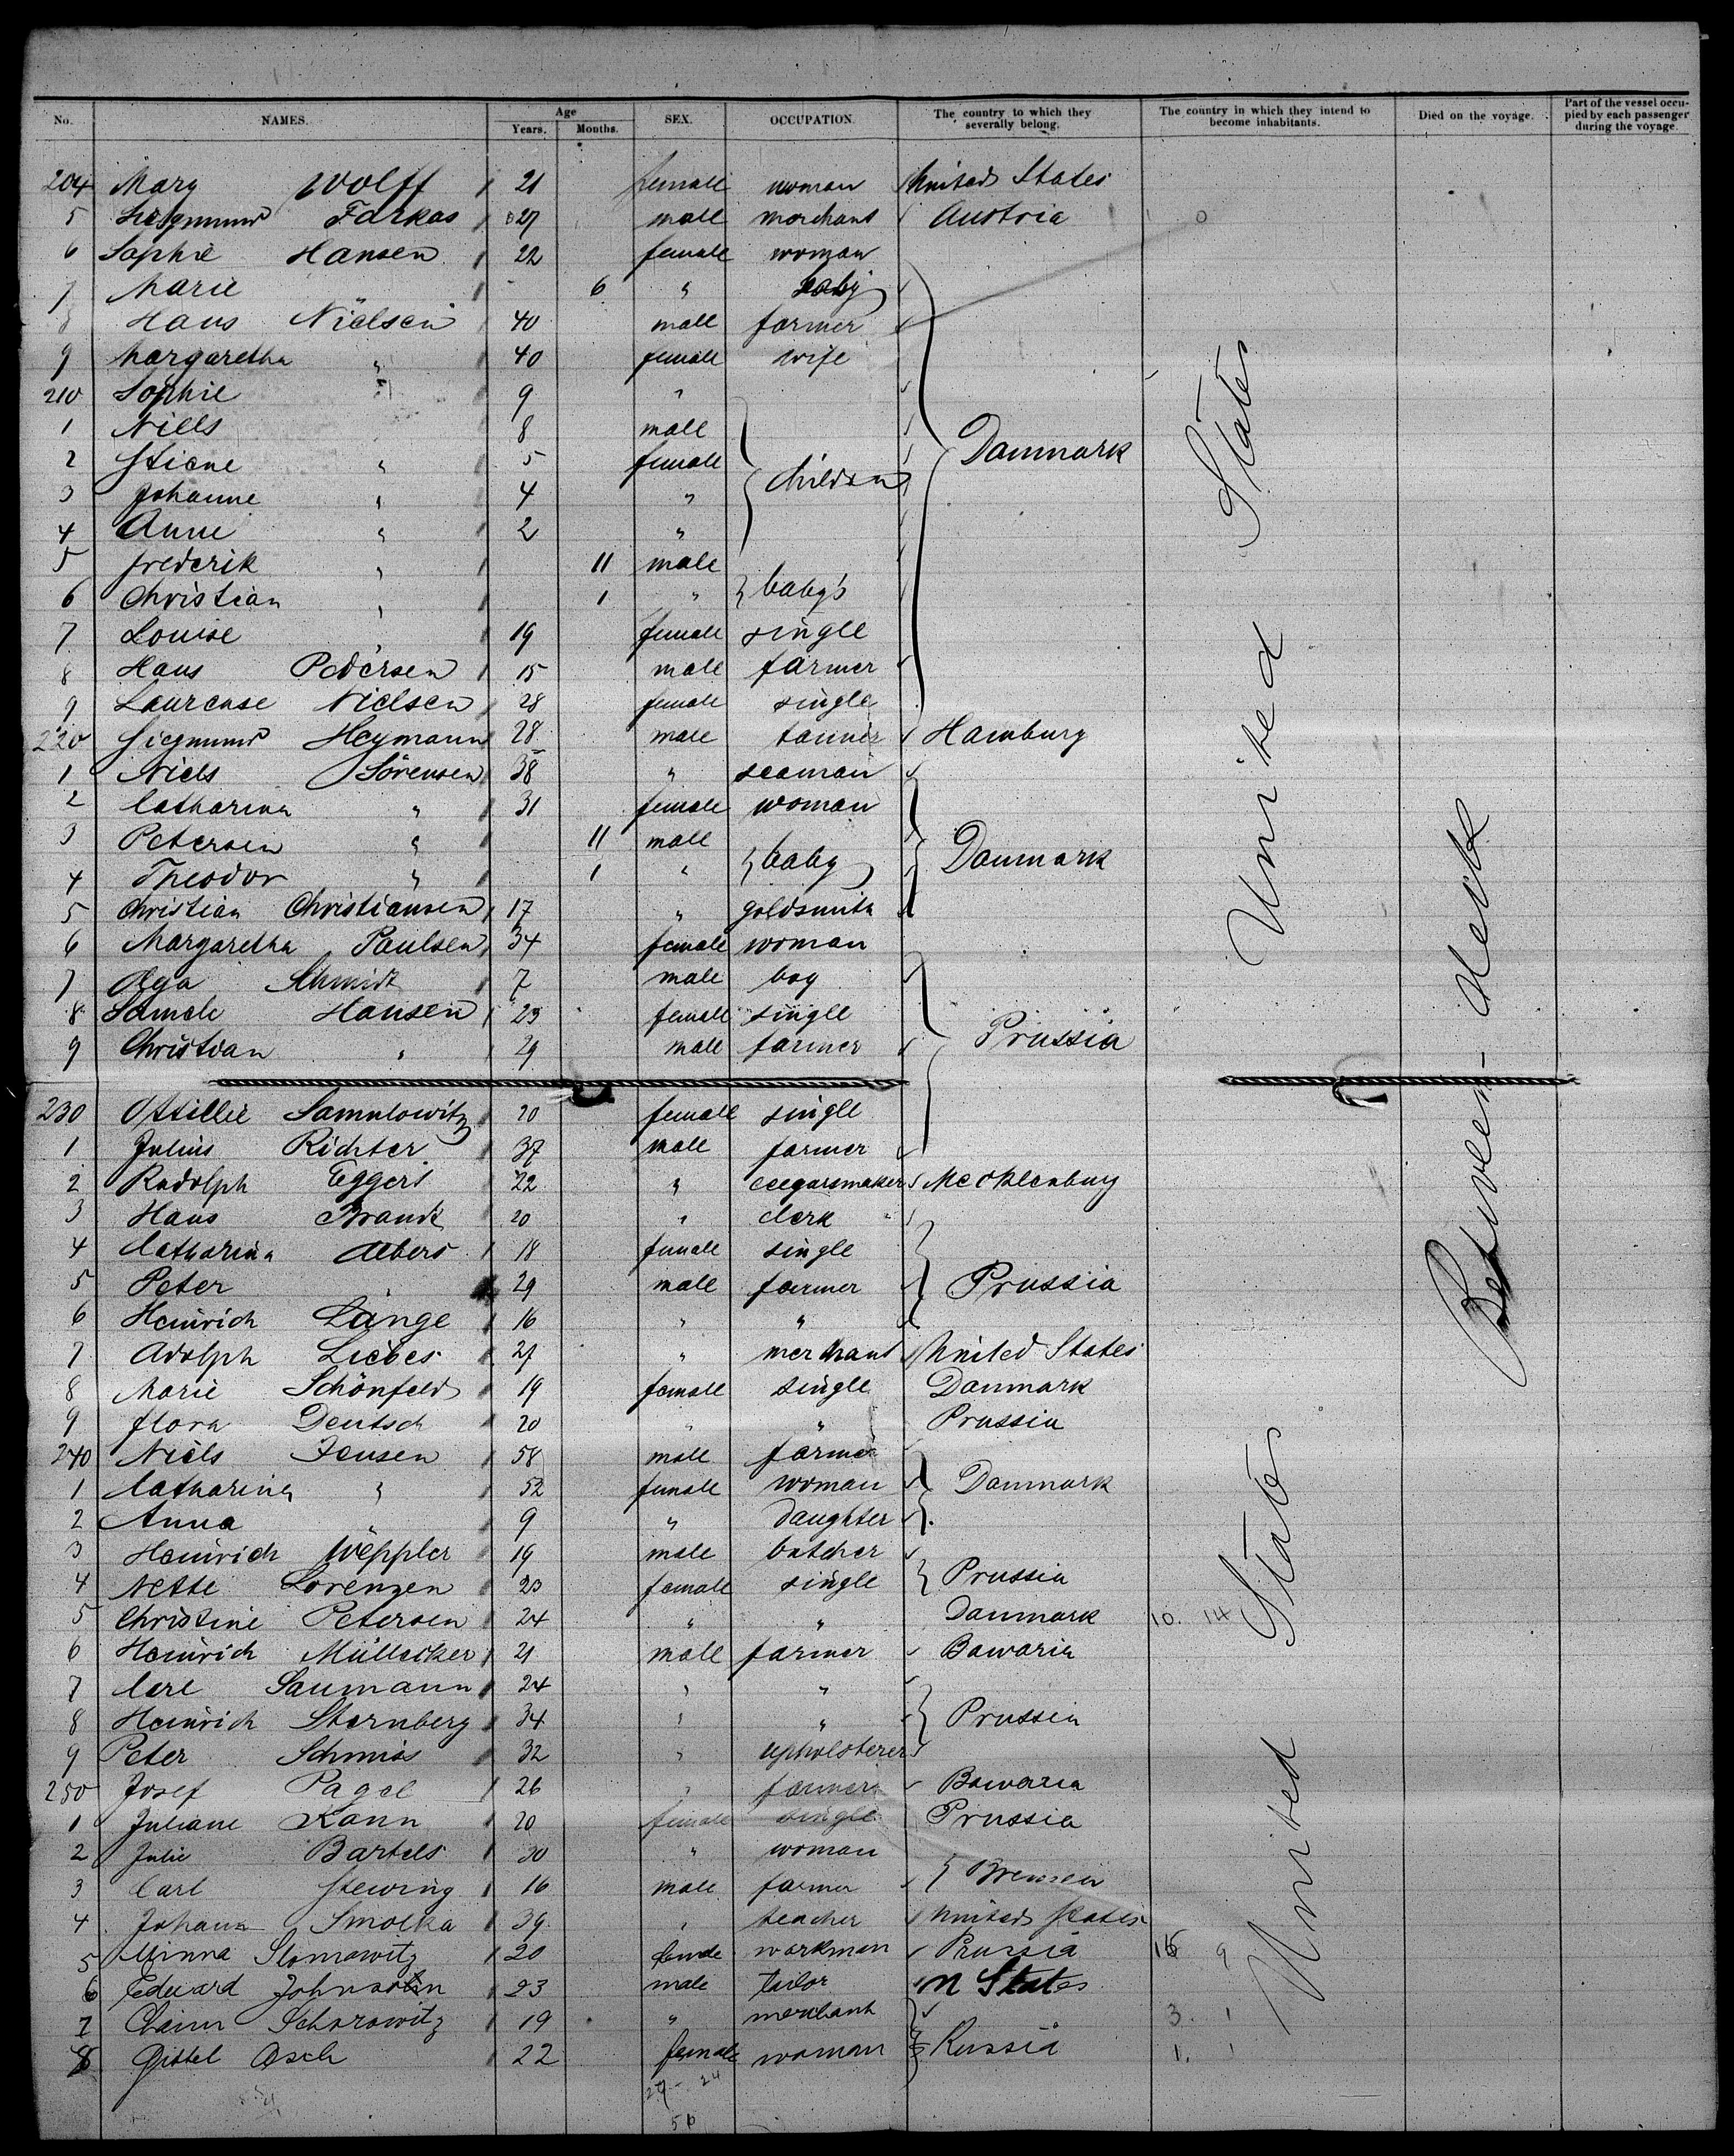 No. NAMES. Age Years. Months. SEX. OCCUPATION. The country to which they severally belong. The country in which they intend to become inhabitants. Died on the voyage. Part of the vessel occupied by each passenger during the voyage.
204 Mary Wolff 21 female woman United States
5 Farkas 27 male merchant Austria
6 Sophie Hansen 22 female woman
7 Marie 6 " baby
8 Hans Nielsen 40 male farmer
9 Margaretha " 40 female wife
210 Sophie " 9 "
1 Niels 8 male
2 Stiene " 5 female
Danmark
3 Johanne " 4 " children
4 Anne " 2 "
5 frederik " 11 male
6 Christian " 1 " baby's
7 Louise " 19 female single
8 Hans Pedersen 15 male farmer
9 Laurense Nielsen 28 female single
220 Siegmund Heymann 28 male tanner Hamburg
1 Niels Sörensen 38 " seaman
2 Catharina " 31 female woman
3 Petersen " 11 male
Danmark
4 Theodor " 1 " baby
5 Christian Christiansen 17 " goldsmith
6 Margaretha Paulsen 34 female woman
7 Olga Schmidt 7 male boy
8 Hansen 23 female single
9 Christian " 29 male farmer
Prussia
230 Ottillie Samulowitz 20 female single
1 Julius Richter 37 male farmer
2 Rudolph Eggers 22 " ceegarsmaker Mecklenburg
3 Hans Brandt 20 " clerk
4 Catharina Albers 18 female single
5 Peter 29 male farmer Prussia
6 Heinrich Lange 16 " "
7 Adolph Liebes 27 " merchant United States
8 Marie Schönfeld 19 female single Danmark
9 flora Deutsch 20 " " Prussia
240 Niels Jensen 58 male farmer
1 Catharina " 52 female woman Danmark
2 Anna " 9 " daughter
3 Heinrich Weppler 19 male butcher
4 Nette Lorenzen 23 female single Prussia
5 Christine Petersen 24 " " Danmark 10. 14
6 Heinrich Müllecker 21 male farmer Bawaria
7 Carl Saumann 24 " "
8 Heinrich Sternberg 34 " " Prussia
9 Peter Schmidt 32 " upholsterer
250 Josef Pagel 26 " farmer Bawaria
1 Juliane Kann 20 female single Prussia
2 Julie Bartels 30 " woman
3 Carl Stewing 16 male farmer Bremen
4 Johann Smolka 39 " teacher United States
5 Minna Slomowitz 20 workman Prussia 16 9
6 Edward Johnson 23 male tailor U States
7 Chaim Schorowitz 19 " merchant 3. 1
8 Gittel Asch 22 female woman Russia 1. 1
27 - 24
51
United States
United States
Between-deck